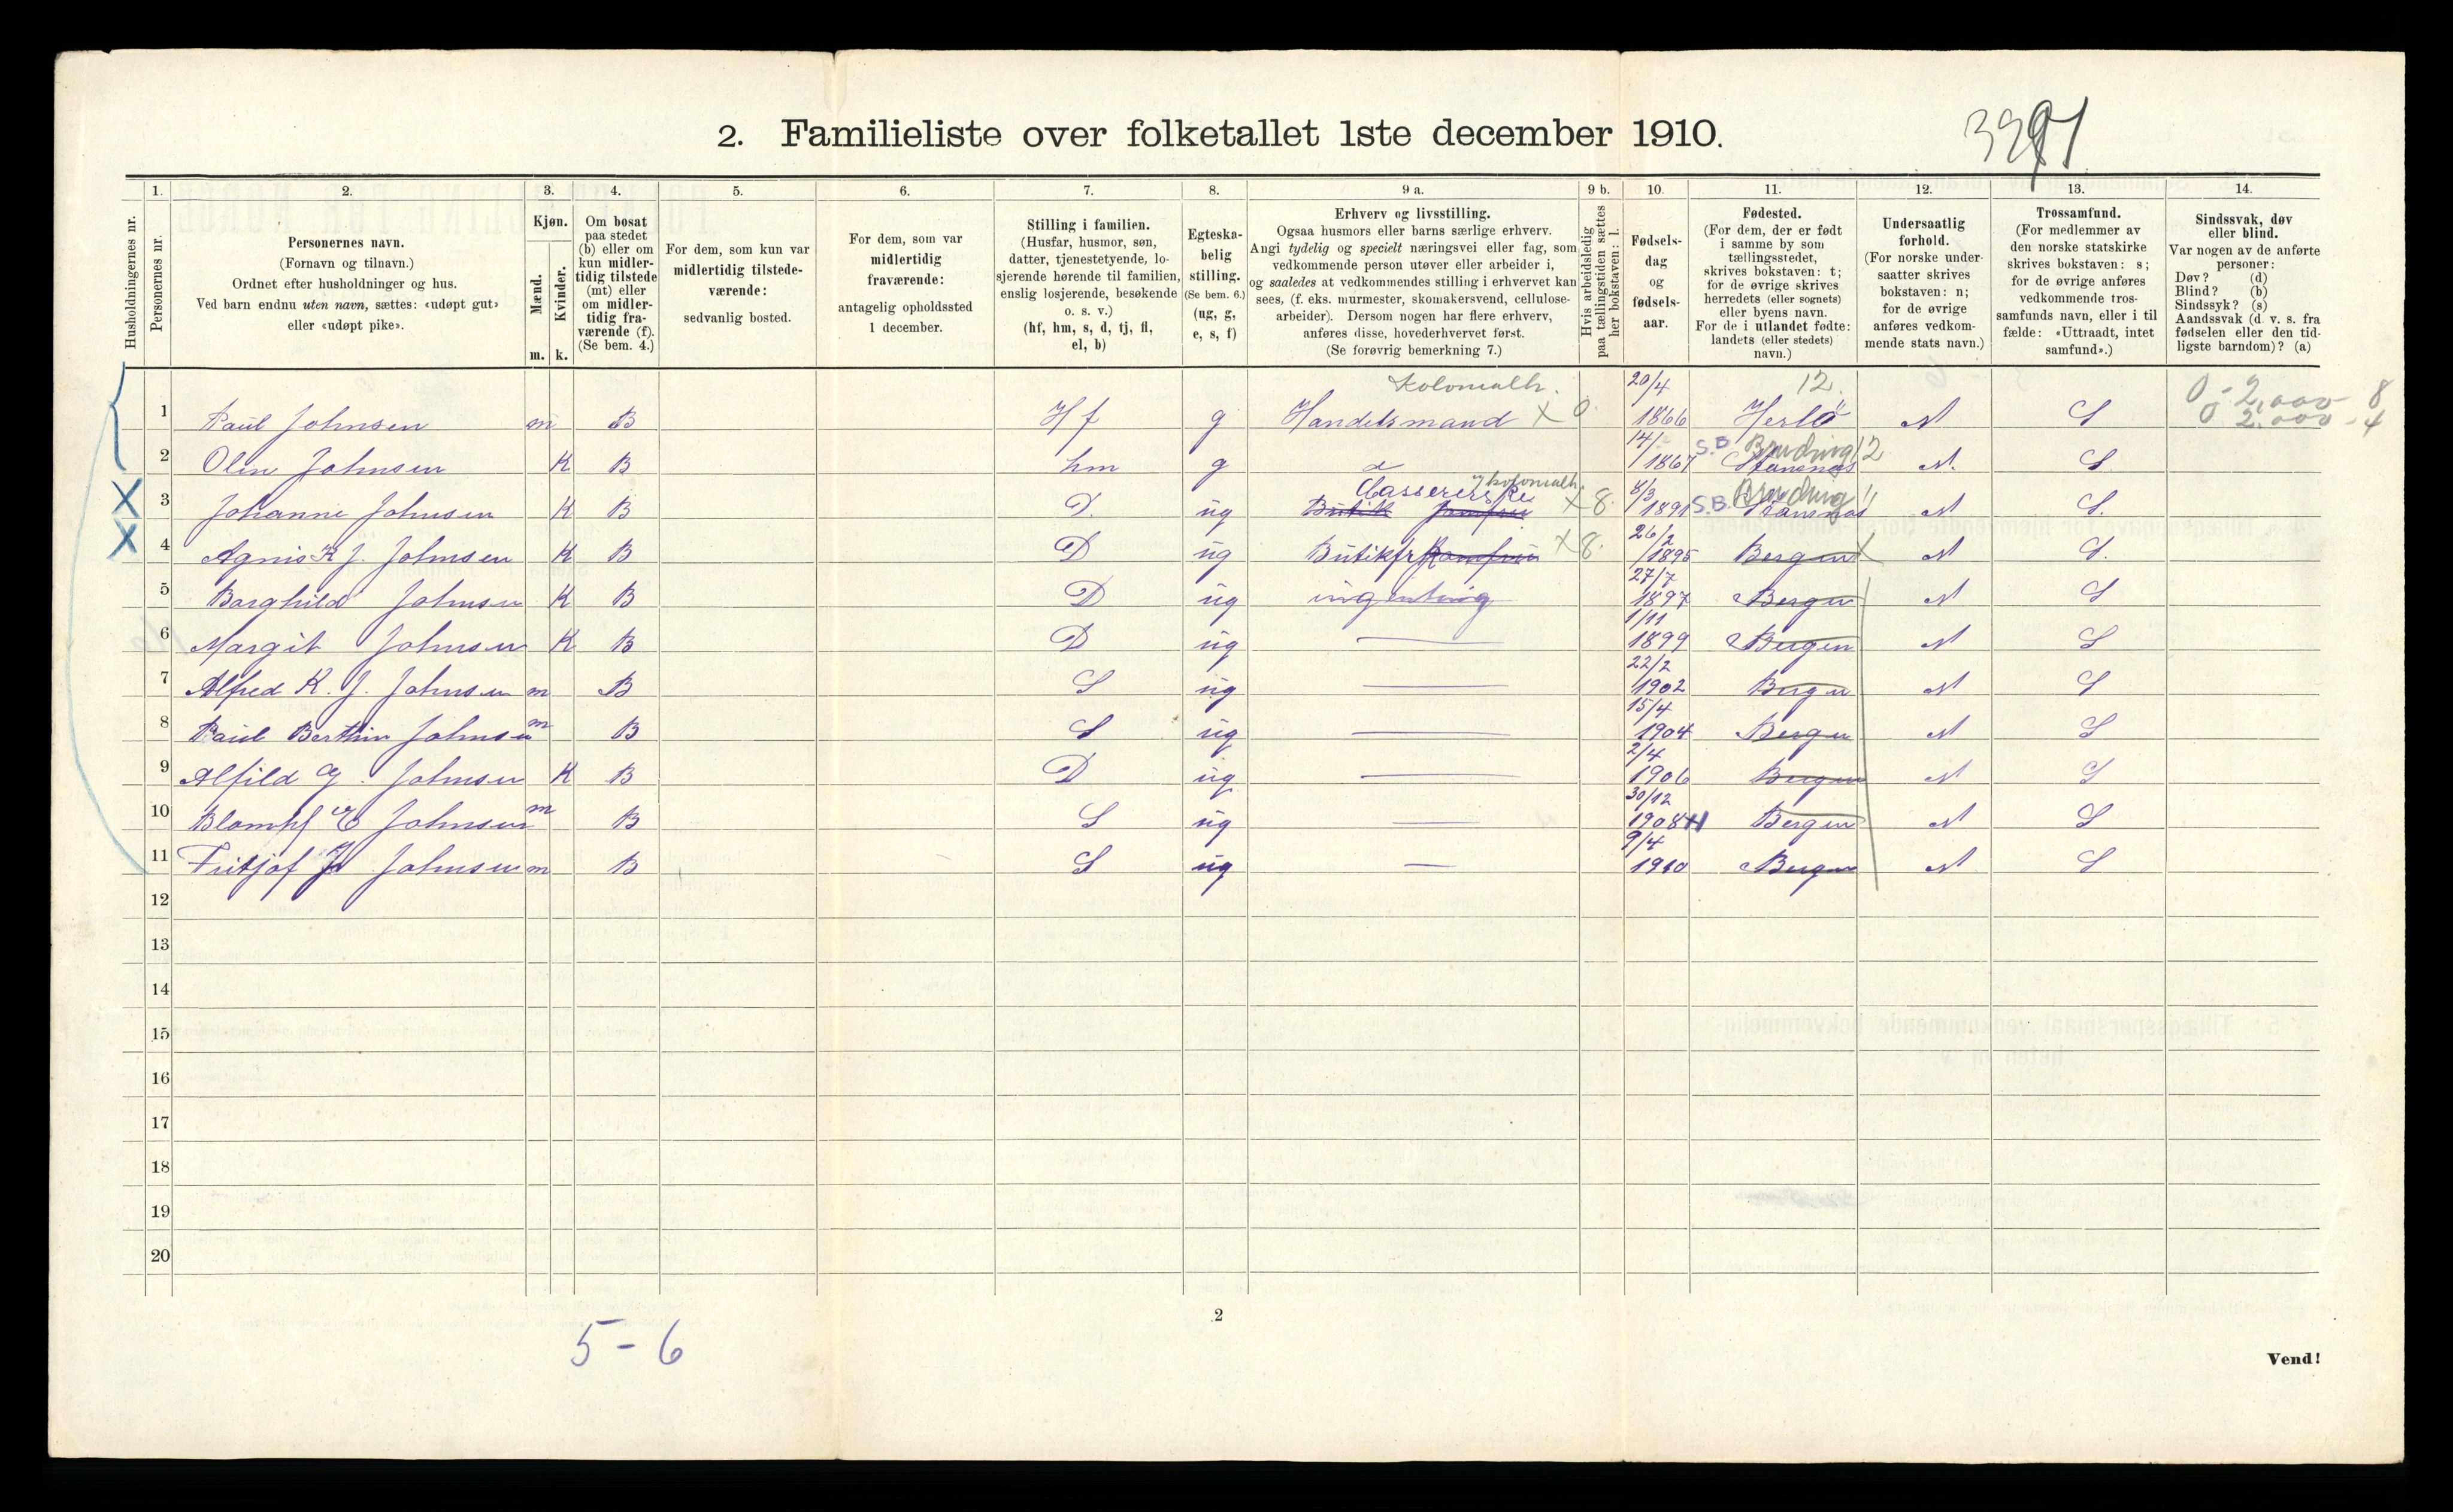 2. Familieliste over folketallet 1ste december 1910.
3291
1. 2. 3. 4. 5. 6. 7. 8. 9 a. 9 b. 10. 11. 12. 13. 14.
Husholdningernes nr.
Personernes nr.
Personernes navn.
(Fornavn og tilnavn.)
Ordnet efter husholdninger og hus.
Ved barn endnu uten navn, sættes: «udøpt gut»
eller «udøpt pike».
Kjøn.
Mænd.
Kvinder.
m. k.
Om bosat
paa stedet
(b) eller om
kun midler-
tidig tilstede
(mt) eller
om midler-
tidig fra-
værende (f).
(Se bem. 4.)
For dem, som kun var
midlertidig tilstede-
værende:
sedvanlig bosted.
For dem, som var
midlertidig
fraværende:
antagelig opholdssted
1 december.
Stilling i familien.
(Husfar, husmor, søn,
datter, tjenestetyende, lo-
sjerende hørende til familien,
enslig losjerende, besøkende
o. s. v.)
(hf, hm, s, d, tj, fl,
el, b)
Egteska-
belig
stilling.
(Se bem. 6.)
(ug, g,
e, s, f)
Erhverv og livsstilling.
Ogsaa husmors eller barns særlige erhverv.
Angi tydelig og specielt næringsvei eller fag, som
vedkommende person utøver eller arbeider i,
og saaledes at vedkommendes stilling i erhvervet kan
sees, (f. eks. murmester, skomakersvend, cellulose-
arbeider). Dersom nogen har flere erhverv,
anføres disse, hovederhvervet først.
(Se forøvrig bemerkning 7.)
Hvis arbeidsledig
paa tællingstiden sættes
her bokstaven: l.
Fødsels-
dag
og
fødsels-
aar.
Fødested.
(For dem, der er født
i samme by som
tællingsstedet,
skrives bokstaven: t;
for de øvrige skrives
herredets (eller sognets)
eller byens navn.
For de i utlandet fødte:
landets (eller stedets)
navn.)
Undersaatlig
forhold.
(For norske under-
saatter skrives
bokstaven: n;
for de øvrige
anføres vedkom-
mende stats navn.)
Trossamfund.
(For medlemmer av
den norske statskirke
skrives bokstaven: s;
for de øvrige anføres
vedkommende tros-
samfunds navn, eller i til
fælde: «Uttraadt, intet
samfund».)
Sindssvak, døv
eller blind.
Var nogen av de anførte
personer:
Døv? (d)
Blind? (b)
Sindssyk? (s)
Aandssvak (d. v. s. fra
fødselen eller den tid-
ligste barndom)? (a)
Kolonialh. 20/4 12. 0-2,000-8
1 Paul Johnsen m B Hf g Handelsmand X 0. 1866 Herlö N S 0 2.000-4
2 Olin Johnsen K B hm g 14/ 1867 S.B. 12 N. S
y kolonialh.
Cassererske 8/3
3 Johanne Johnsen K B D. ug Butik Jomfru X 8. 1891 S.B. 11 N S.
26/2
4 Agnis K J. Johnsen K B D ug Butikfr Jomfru X 8. 1895 Bergen X N S.
27/7
5 Borghild Johnsen K B D ug ingenting 1897 Bergen N S
1/11
6 Margit Johnsen K B D ug 1899 Bergen N S
22/2
7 Alfred K. J. Johnsen m B S ug 1902 Bergen N S
15/4
8 Paul Berthin Johnsen m B S ug 1904 Bergen N S
2/4
9 Alfild G. Johnsen K B D ug 1906 Bergen N S
30/12
10 E Johnsen m B S ug 1908 Bergen N S
9/4
11 Fritjof Johnsen m B S ug 1910 Bergen N S
12
13
14
15
16
17
18
19
20
2
5-6
Vend!